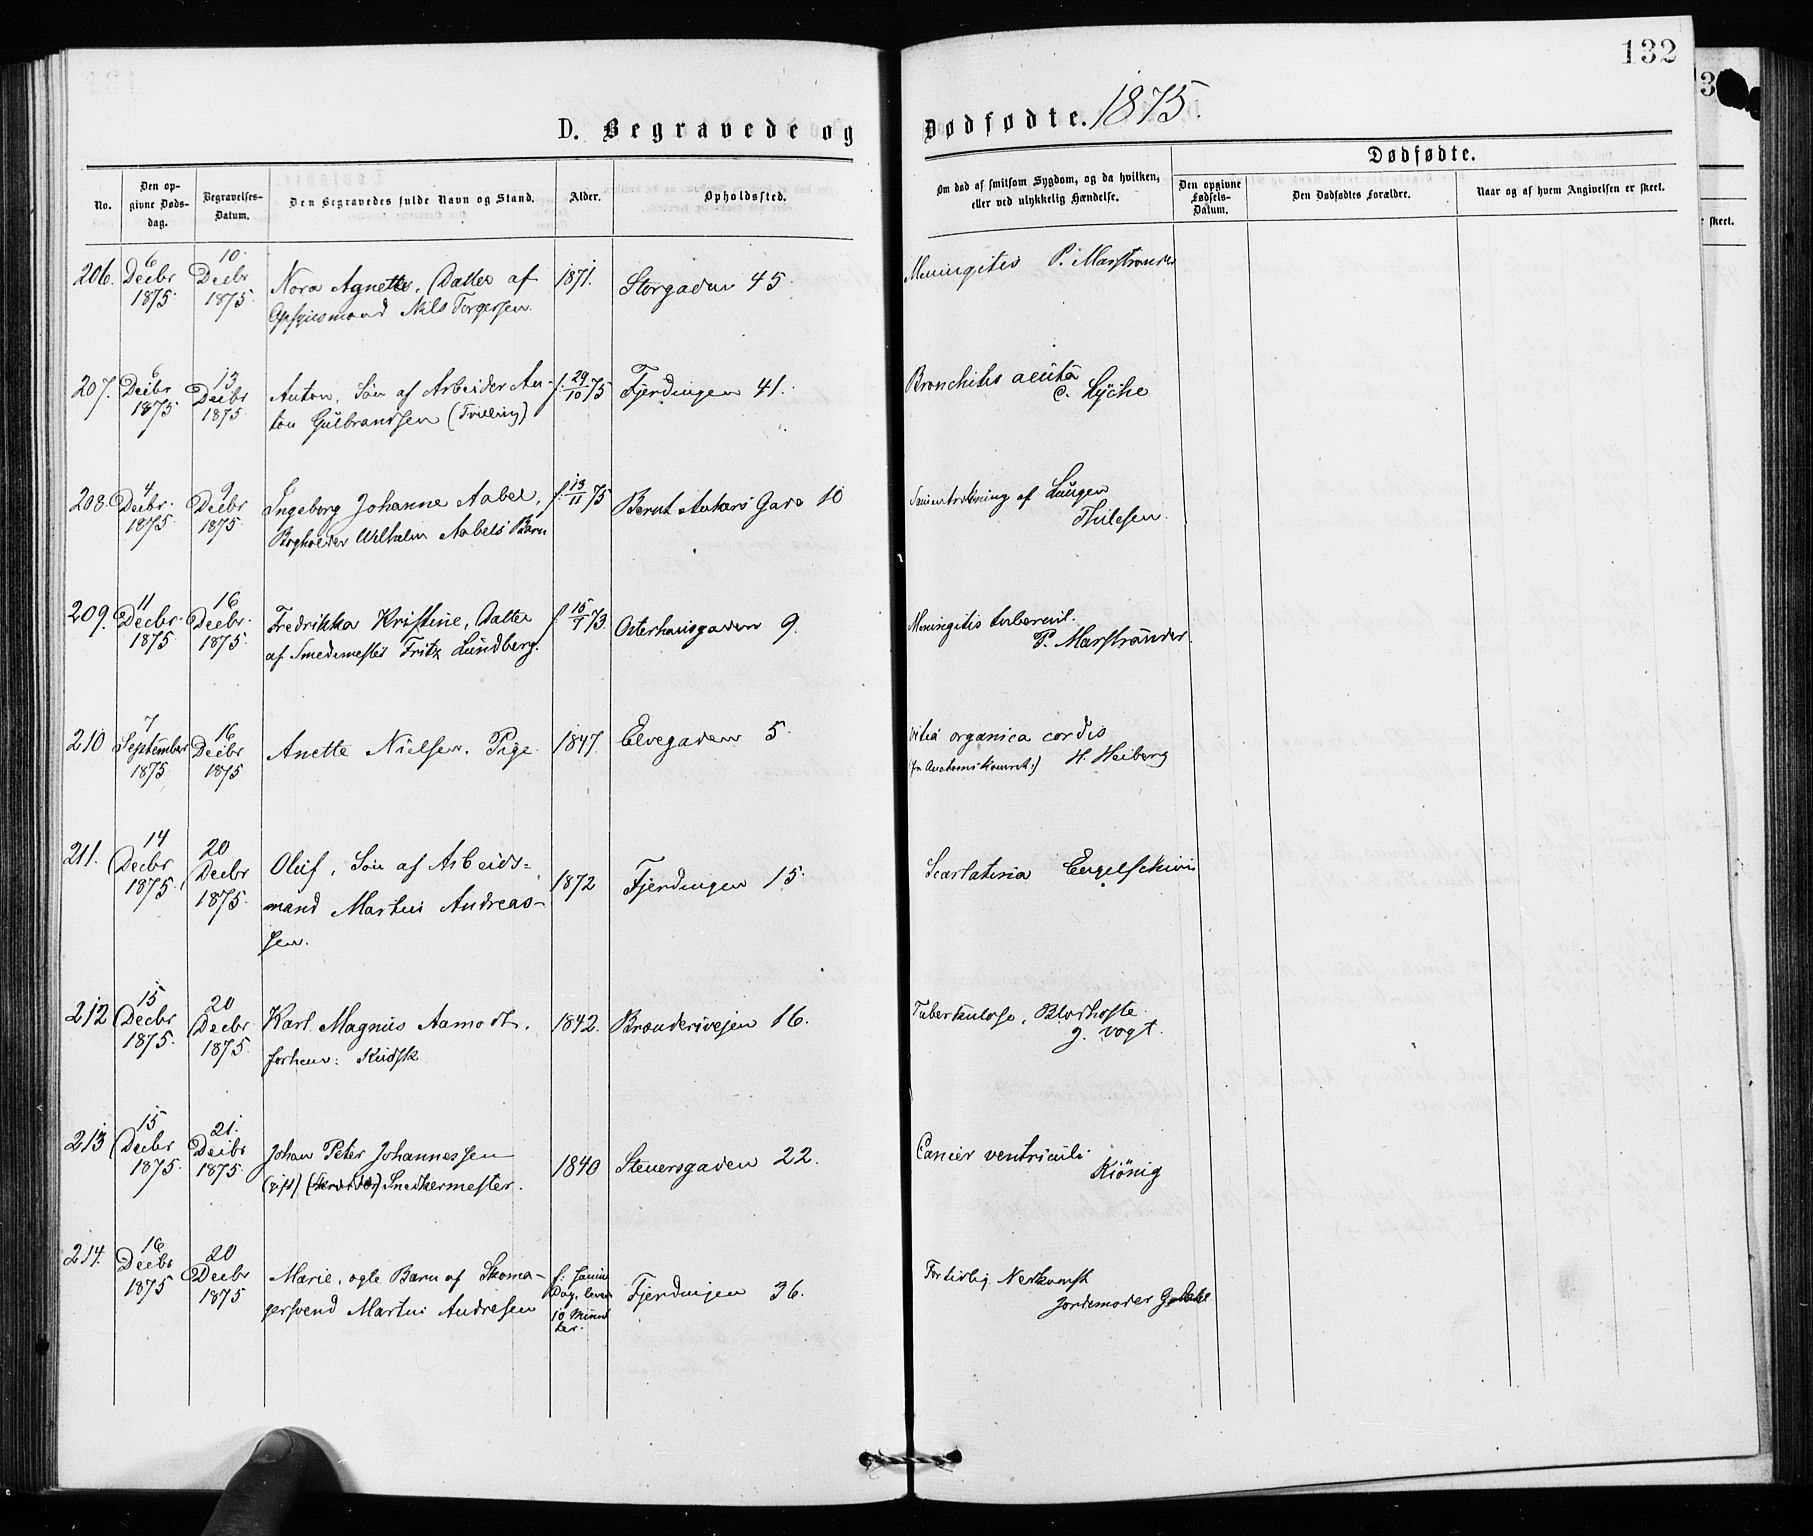 132
D. Begravede og Dødfødte. 1875.
No.
Den opgivne Dødsdag.
Begravelses-Datum.
Den Begravedes fulde Navn og Stand.
Alder.
Opholdssted.
Om død af smitsom Sygdom, og da hvilken, eller ved ulykkelig Hændelse.
Dødfødte.
Den opgivne Fødsels-Datum.
Den Dødfødtes Forældre.
Naar og af hvem Angivelsen er skeet.
206. 6 Decbr 1875. 10. Decbr 1875. Nora Agnette, Datter af 1871. Storgaden 45 Meningitis P. Marstrander
Opsynsmand Nils Torgersen.
207. 6 Decbr 1875 13 Decbr 1875. Anton, Søn af Arbeider An- f. 29/10 75 Fjerdingen 41. Bronchitis acuta
ton Gulbrandsen (Tvilling) C. Lyche
208. 4 Decbr. 1875. 9 Decbr 1875. Ingeborg Johanne Aabel, f. 13/11 75 Bernt Ankers Gade 10 af Lungen
Bogholder Wilhelm Aabels Barn Thilesen.
209. 11 Decbr. 1875 16 Decbr. 1875. Fredrikka Kristine, Datter f. 15/1 73. Osterhausgaden 9. Meningitis tubercul.
af Smedemester Fritz Lundberg. P. Marstrander.
210 7 September 1875. 16 Decbr 1875 Anette Nielsen. Pige. 1847. Elvegaden 5. vitia organica cordis
H. Heiberg
211. 14 Decbr 1875. 20 Decbr 1875. Oluf, Søn af Arbeids- 1872 Fjerdingen 15. Scarlatina Engelschiøn
mand Martin Andreas-
sen.
212 15 Decbr 1875. 20 Decbr 1875. Karl Magnus Aamodt, 1842. Brænderivejen 16. Tuberkulose, Blodhoste.
forhenv: Kudsk J. Vogt.
213 15 Decbr 1875. 21. Decbr 1875. Johan Peter Johannessen 1840 Stenersgaden 22. Cancer ventriculi
(gift) Snedkermester. Kiönig
214. 16 Decbr 1875 20 Decbr 1875 Marie, ægte Barn af Skoma- f: samme Dag, levede 10 Minutter. Fjerdingen 36. For tidlig Nedkomst
gersvend Martin Andresen Jordemoder G. Dahl